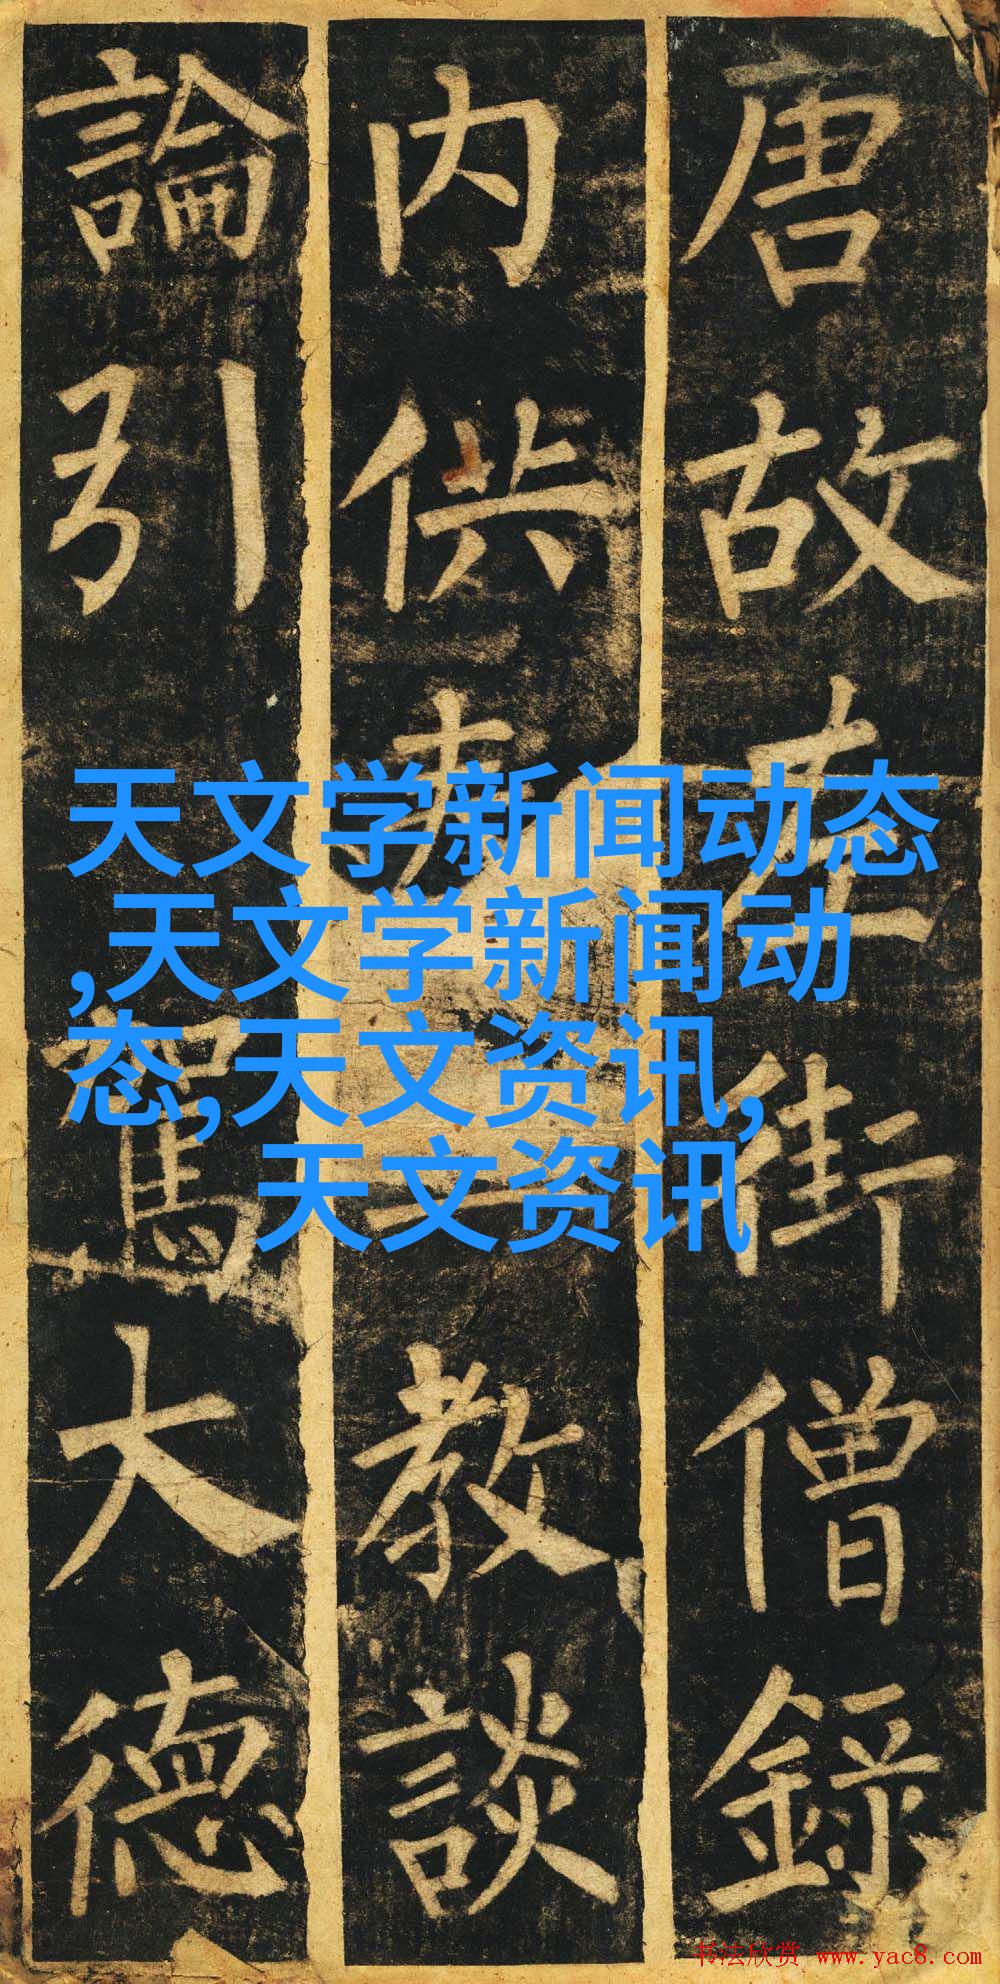 唐故左街僧錄
内供奉三教談
論引駕大德
天文学新闻动态
,天文学新闻动
态,天文资讯,
天文资讯
书法欣赏 www.yac8.com